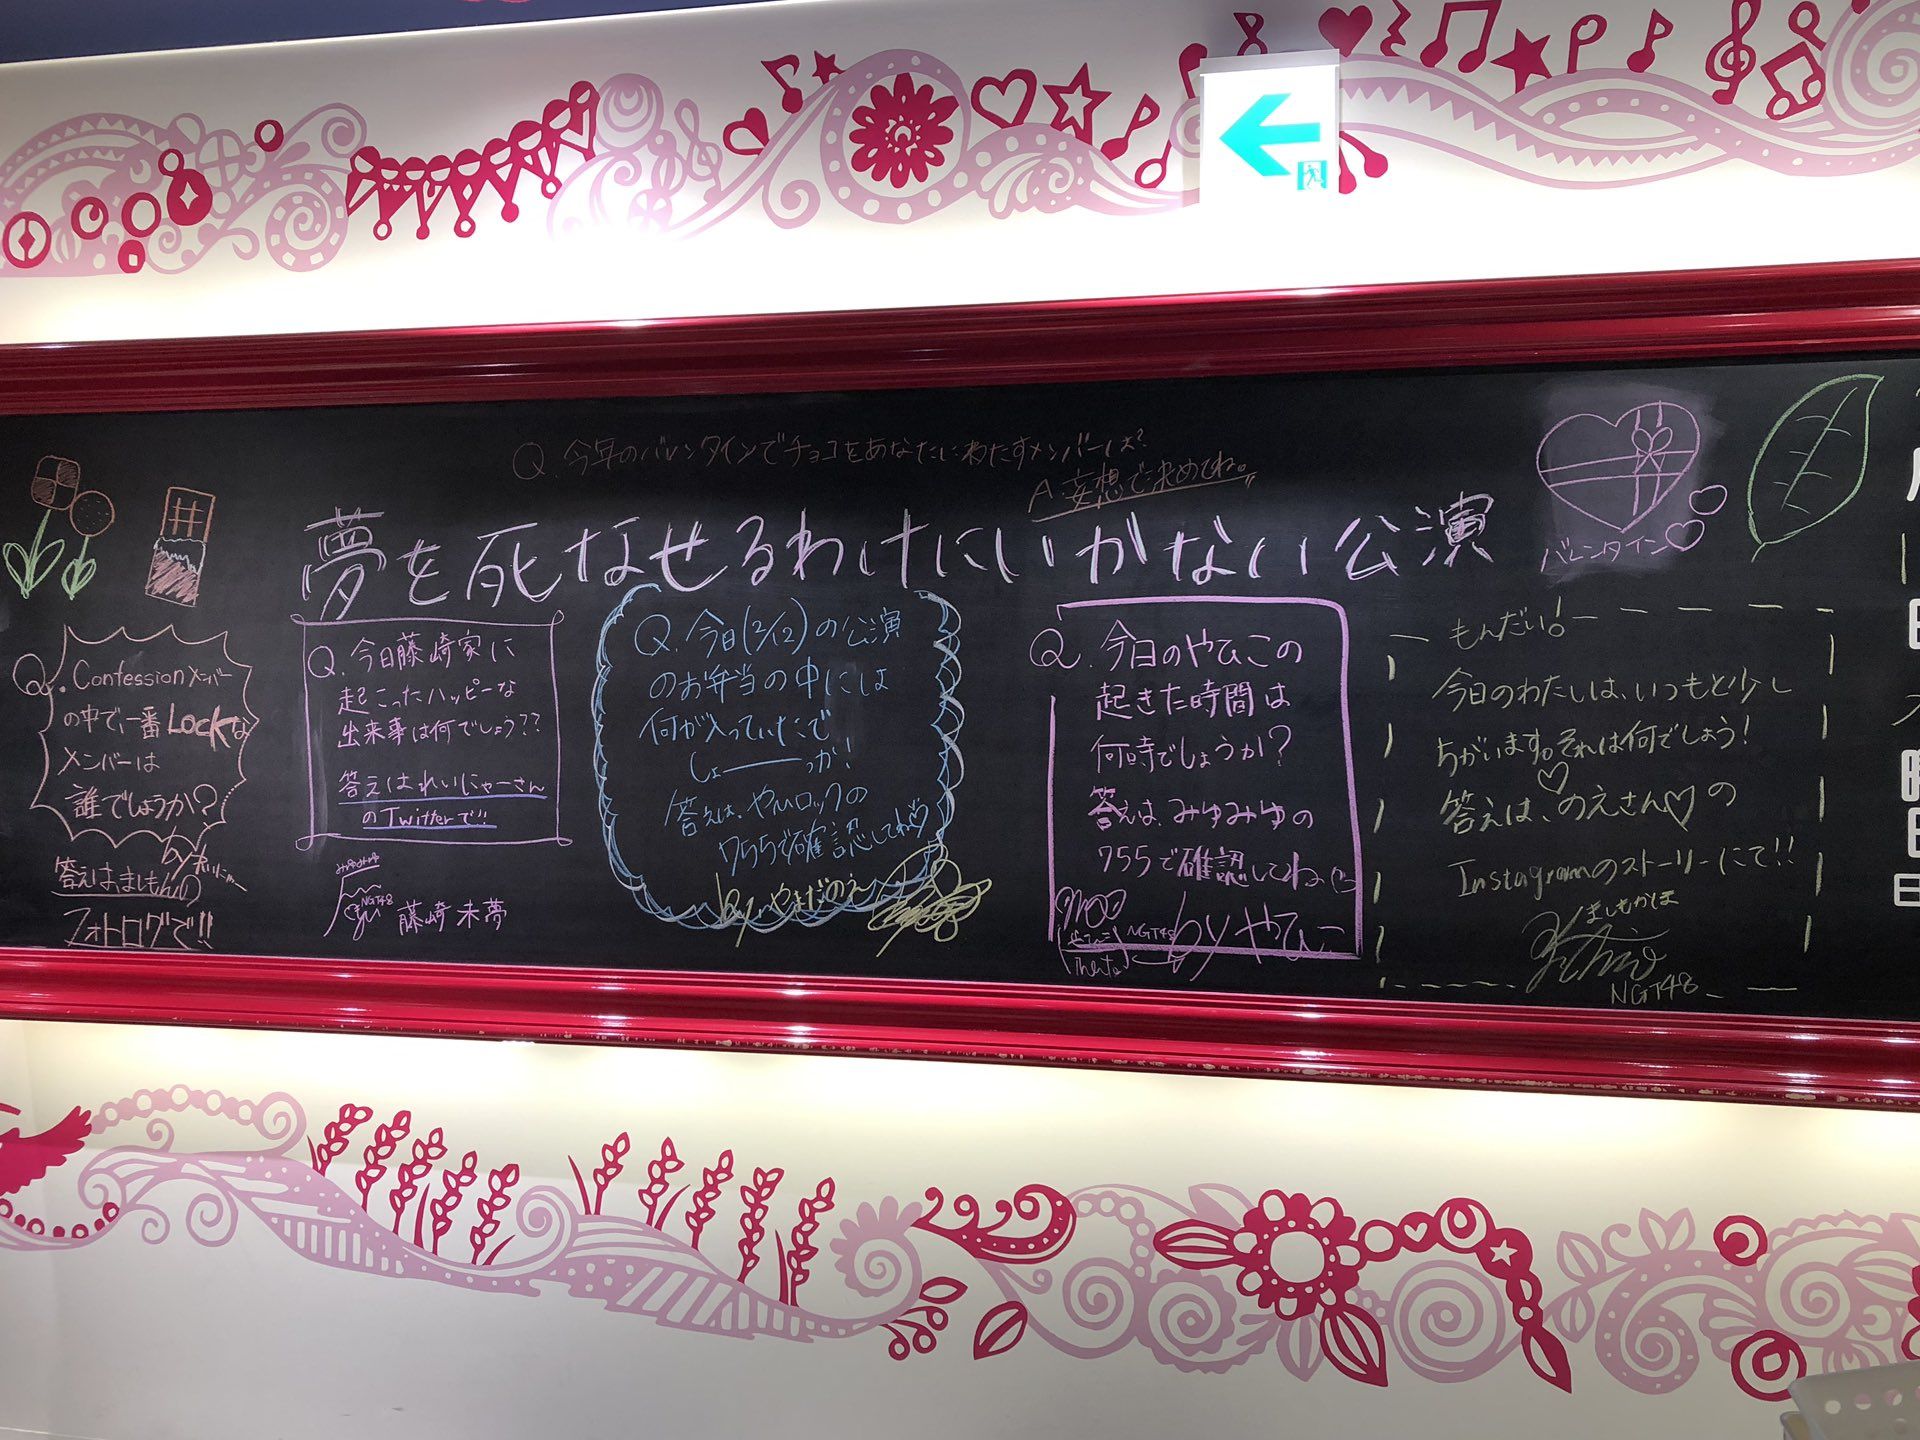 Q. 今年のバレンタインでチョコをあなたにわたすメンバーは?
A. 妄想で決めてね。
夢を死なせるわけにいかない公演
バレンタイン
Q. Confessionメンバー
の中で一番Lockな
メンバーは
誰でしょうか?
by れいにゃー
答えは、ましもんの
フォトログで!!
Q. 今日藤崎家に
起こったハッピーな
出来事は何でしょう??
答えはれいにゃーさん
のTwitterで!!
NGT48
藤崎未夢
Q. 今日(2/12)の公演
のお弁当の中には
何が入っていたで
しょーーーっか!
答えは、やひロックの
755で確認してね♡
by やまだのえ
Q. 今日のやひこの
起きた時間は
何時でしょうか?
答えは、みゆみゆの
755で確認してね
NGT48 by やひこ
もんだい!
今日のわたしは、いつもと少し
ちがいます。それは何でしょう!
答えは、♡のえさん♡の
Instagramのストーリーにて!!
ましもかほ
NGT48